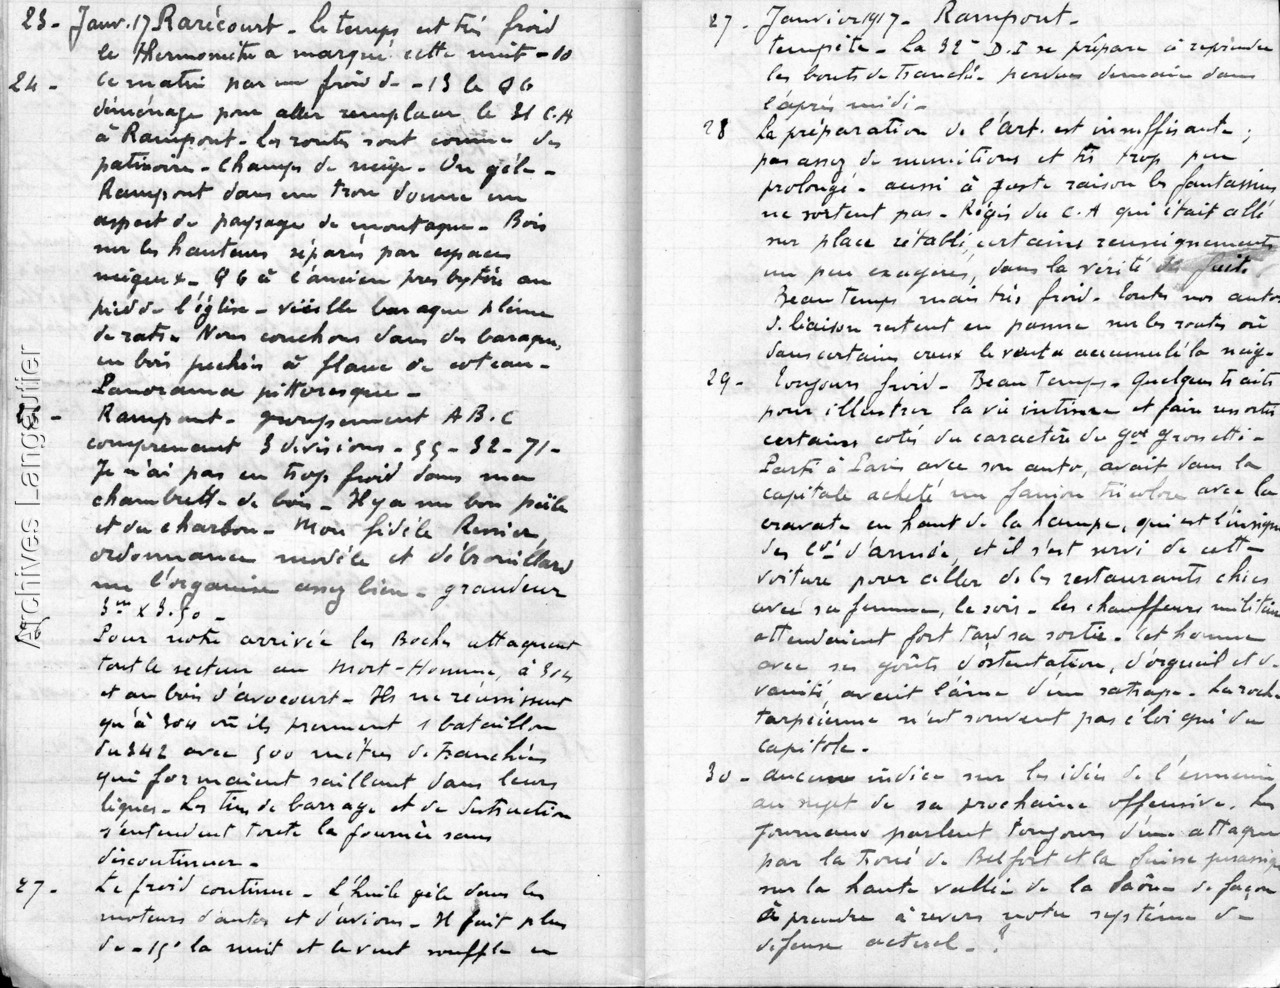 23 - Janv. 17 Rarécourt - le temps est très froid
le thermomètre a marqué cette nuit - 10
24 - Ce matin par un froid de - 13 le QG
déménage pour aller remplacer le 31 C.A
à Rampont - Les routes sont comme des
patinoires - Champs de neige - On gèle -
Rampont dans un trou donne un
aspect de paysage de montagne - Bois
sur les hauteurs séparés par espaces
neigeux - QG à l'ancien presbytère au
pied de l'église - vieille baraque pleine
de rats - Nous couchons dans des baraques
en bois perchés à flanc de coteau -
Panorama pittoresque -
Rampont - groupement A B.C
comprenant 3 divisions - 55 - 32 - 71 -
Je n'ai pas eu trop froid dans ma
chambrette de bois - Il y a un bon poêle
et du charbon - Mon fidèle
ordonnance modèle et débrouillard
me l'organise assez bien - grandeur
3m x 3.50 -
Pour notre arrivée les Boches attaquent
tout le secteur au Mort-Homme, à 304
et au bois d'avocourt - Ils ne réussissent
qu'à 304 où ils prennent 1 bataillon
du 342 avec 500 mètres de tranchées
qui formaient saillant dans leurs
lignes - Les tirs de barrage et de destruction
s'entendent toute la journée sans
discontinuer -
27 - Le froid continue - L'huile gèle dans les
moteurs d'autos et d'avions - Il fait plus
de - 15° la nuit et le vent souffle en
27 - Janvier 1917 - Rampont -
tempête - La 32e D.I se prépare à reprendre
les bouts de tranchée perdus demain dans
l'après midi -
28 La préparation de l'art. est insuffisante ;
pas assez de munitions et tir trop peu
prolongé - aussi à juste raison les fantassins
ne sortent pas - Régis du C.A qui était allé
sur place rétablit certains renseignements
un peu exagérés, dans la vérité des faits.
Beau temps mais très froid. Toutes nos autos
de liaison restent en panne sur les routes où
dans certains creux le vent a accumulé la neige
29 - Toujours froid - Beau temps - Quelques traits
pour illustrer la vie intime et faire ressortir
certains cotés du caractère du gal grossetti -
Parti à Paris avec son auto, avait dans la
capitale acheté un fanion tricolore avec la
cravate en haut de la hampe, qui est l'insigne
des Cdt d'armée, et il s'est servi de cette
voiture pour aller de les restaurants chics
avec sa femme, le soir - Les chauffeurs militaires
attendaient fort tard sa sortie - Cet homme
avec ses goûts d'ostentation, d'orgueil et de
vanité avait l'âme d'un satrape - La roche
tarpéienne n'est souvent pas éloignée du
capitole -
30 - aucune indice sur les idées de l'ennemi
au sujet de sa prochaine offensive. Les
journaux parlent toujours d'une attaque
par la Troué de Belfort et la Suisse jurassique
sur la haute vallée de la Saône de façon
à prendre à revers notre système de
défense actuel - ?
Archives Langeullier